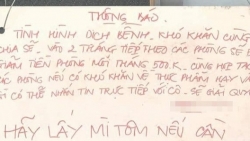 THÔNG BÁO.
TÌNH HÌNH DỊCH BỆNH. KHÓ KHĂN CÙNG
CHIA SẺ. VÀO 2 THÁNG TIẾP THEO CÁC PHÒNG SẼ Đ
GIẢM TIỀN PHÒNG MỖI THÁNG 500K. CÙNG HỢP TÁC
CÁC PHÒNG NẾU CÓ KHÓ KHĂN VỀ THỰC PHẨM HAY VẤ
ĐỀ CÓ THỂ NHẮN TIN TRỰC TIẾP VỚI CÔ. SẼ GIẢI QUY
HÃY LẤY MÌ TÔM NẾU CẦN